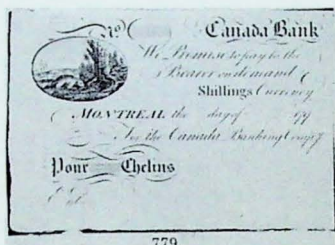 No. Canada Bank
We Promise to pay to the
Bearer on demand
Shillings Currency
MONTREAL the day of 179
For the Canada Banking Comp.y
Pour Chelins
779